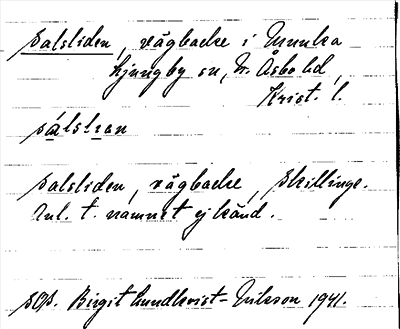 Salsliden, vägbacke i Munka
Ljungby sn, N. Åsbo hd,
Krist. l.
sálslian
Salsliden, vägbacke, Skillinge.
Anl. t. namnet ej känd.
SOS. Birgit Lundkvist-Nilsson 1941.